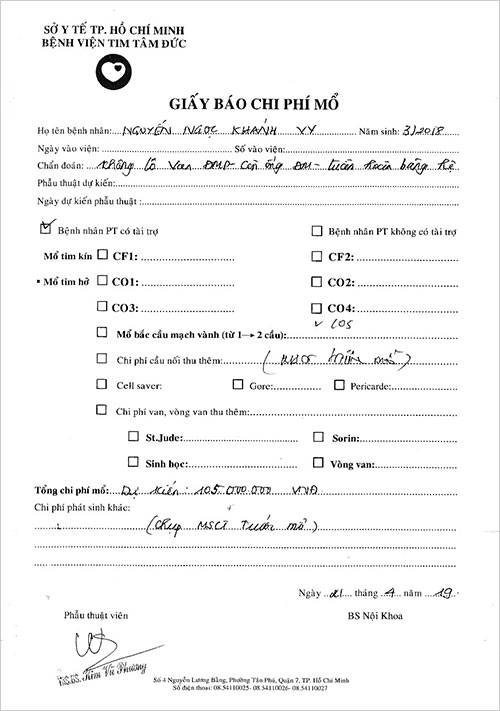 SỞ Y TẾ TP. HỒ CHÍ MINH
BỆNH VIỆN TIM TÂM ĐỨC
GIẤY BÁO CHI PHÍ MỔ
Họ tên bệnh nhân: NGUYỄN NGỌC KHÁNH VY Năm sinh: 3/2018
Ngày vào viện: Số vào viện:
Chẩn đoán: Không lỗ van ĐMP - Còn ống ĐM - tuần hoàn bàng hệ
Phẫu thuật dự kiến:
Ngày dự kiến phẫu thuật :
Bệnh nhân PT có tài trợ Bệnh nhân PT không có tài trợ
Mổ tim kín CF1: CF2:
Mổ tim hở CO1: CO2:
CO3: CO4:
CO5
Mổ bắc cầu mạch vành (từ 1→ 2 cầu):
Chi phí cầu nối thu thêm:
Cell saver: Gore: Pericarde:
Chi phí van, vòng van thu thêm:
St.Jude: Sorin:
Sinh học: Vòng van:
Tổng chi phí mổ: Dự kiến: 105.000.000 VNĐ
Chi phí phát sinh khác:
(Chụp MSCT trước mổ)
Ngày 21 tháng 4 năm 19
Phẫu thuật viên BS Nội Khoa
ThS.BS. Kim Vũ Phương
Số 4 Nguyễn Lương Bằng, Phường Tân Phú, Quận 7, TP. Hồ Chí Minh
Số điện thoại: 08.54110025- 08.54110026- 08.54110027